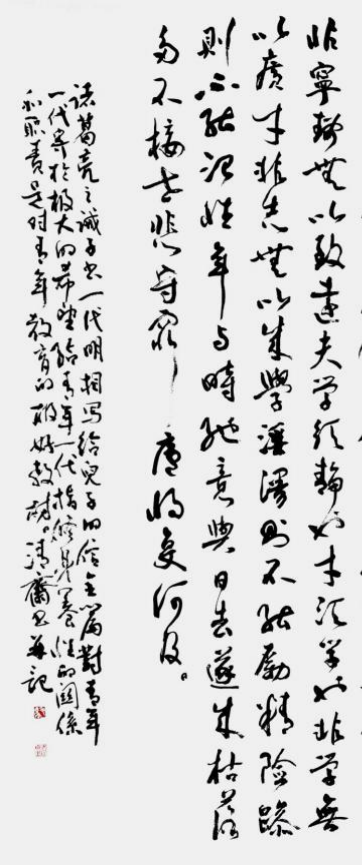 非寧静無以致遠夫学須静也才須学也非学無
以廣才非志無以成學淫漫則不能勵精險躁
則不能治性年与時馳意與日去遂成枯落
多不接世悲守窮廬將復何及。
諸葛亮之诫子書一代明相写给兒子的信全篇對青年
一代寄於極大的希望给青年一代指修身養性的關係
和職責是对青年教育的極好教材。清齋書並記